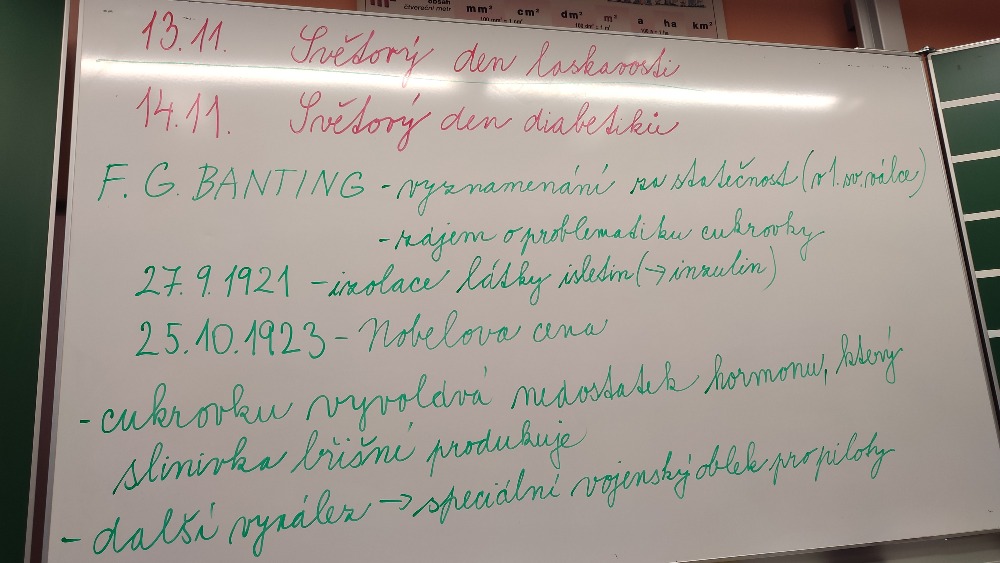 obsah
čtvereční metr
mm² cm² dm² m² a ha km²
13.11. Světový den laskavosti
14.11. Světový den diabetiků
F. G. BANTING - vyznamenání za statečnost (v 1. sv. válce)
- zájem o problematiku cukrovky
27. 9. 1921 - izolace látky isletin (→ inzulin)
25.10.1923 - Nobelova cena
- cukrovku vyvolává nedostatek hormonu, který
slinivka břišní produkuje
- další vynález → speciální vojenský oblek pro piloty